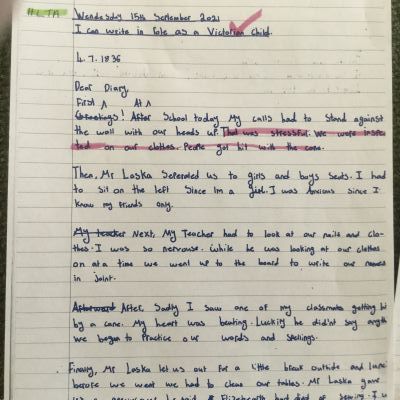 #LTA
Wendesday 15th September 2021
I can write in role as a Victorian child.
4.7.1836
Dear Diary,
First At
Greetings! After School today My calls had to Stand against
the wall with our heads up. That was stressful. We were inspe
ted on our clothes. People got hit with the cane.
Then, Mr Laska Seperated us to girls and boys Seats. I had
to Sit on the left Since Im a girl. I was Anxious Since I
know my friends only.
My teacher Next, My Teacher had to look at our nails and clo-
thes. I was so nervouse. While he was looking at our clothes
on at a time we went up to the board to write our names
in joint.
Afterward After, Sadly I saw one of my classmates getting hit
by a cane. My heart was beating. Luckily he didn't say
we began to Practice our words and Spellings.
Finally, Mr Laska let us out for a little break outside and
before we went we had to clean our tables. Mr Laska gave
he said had died of